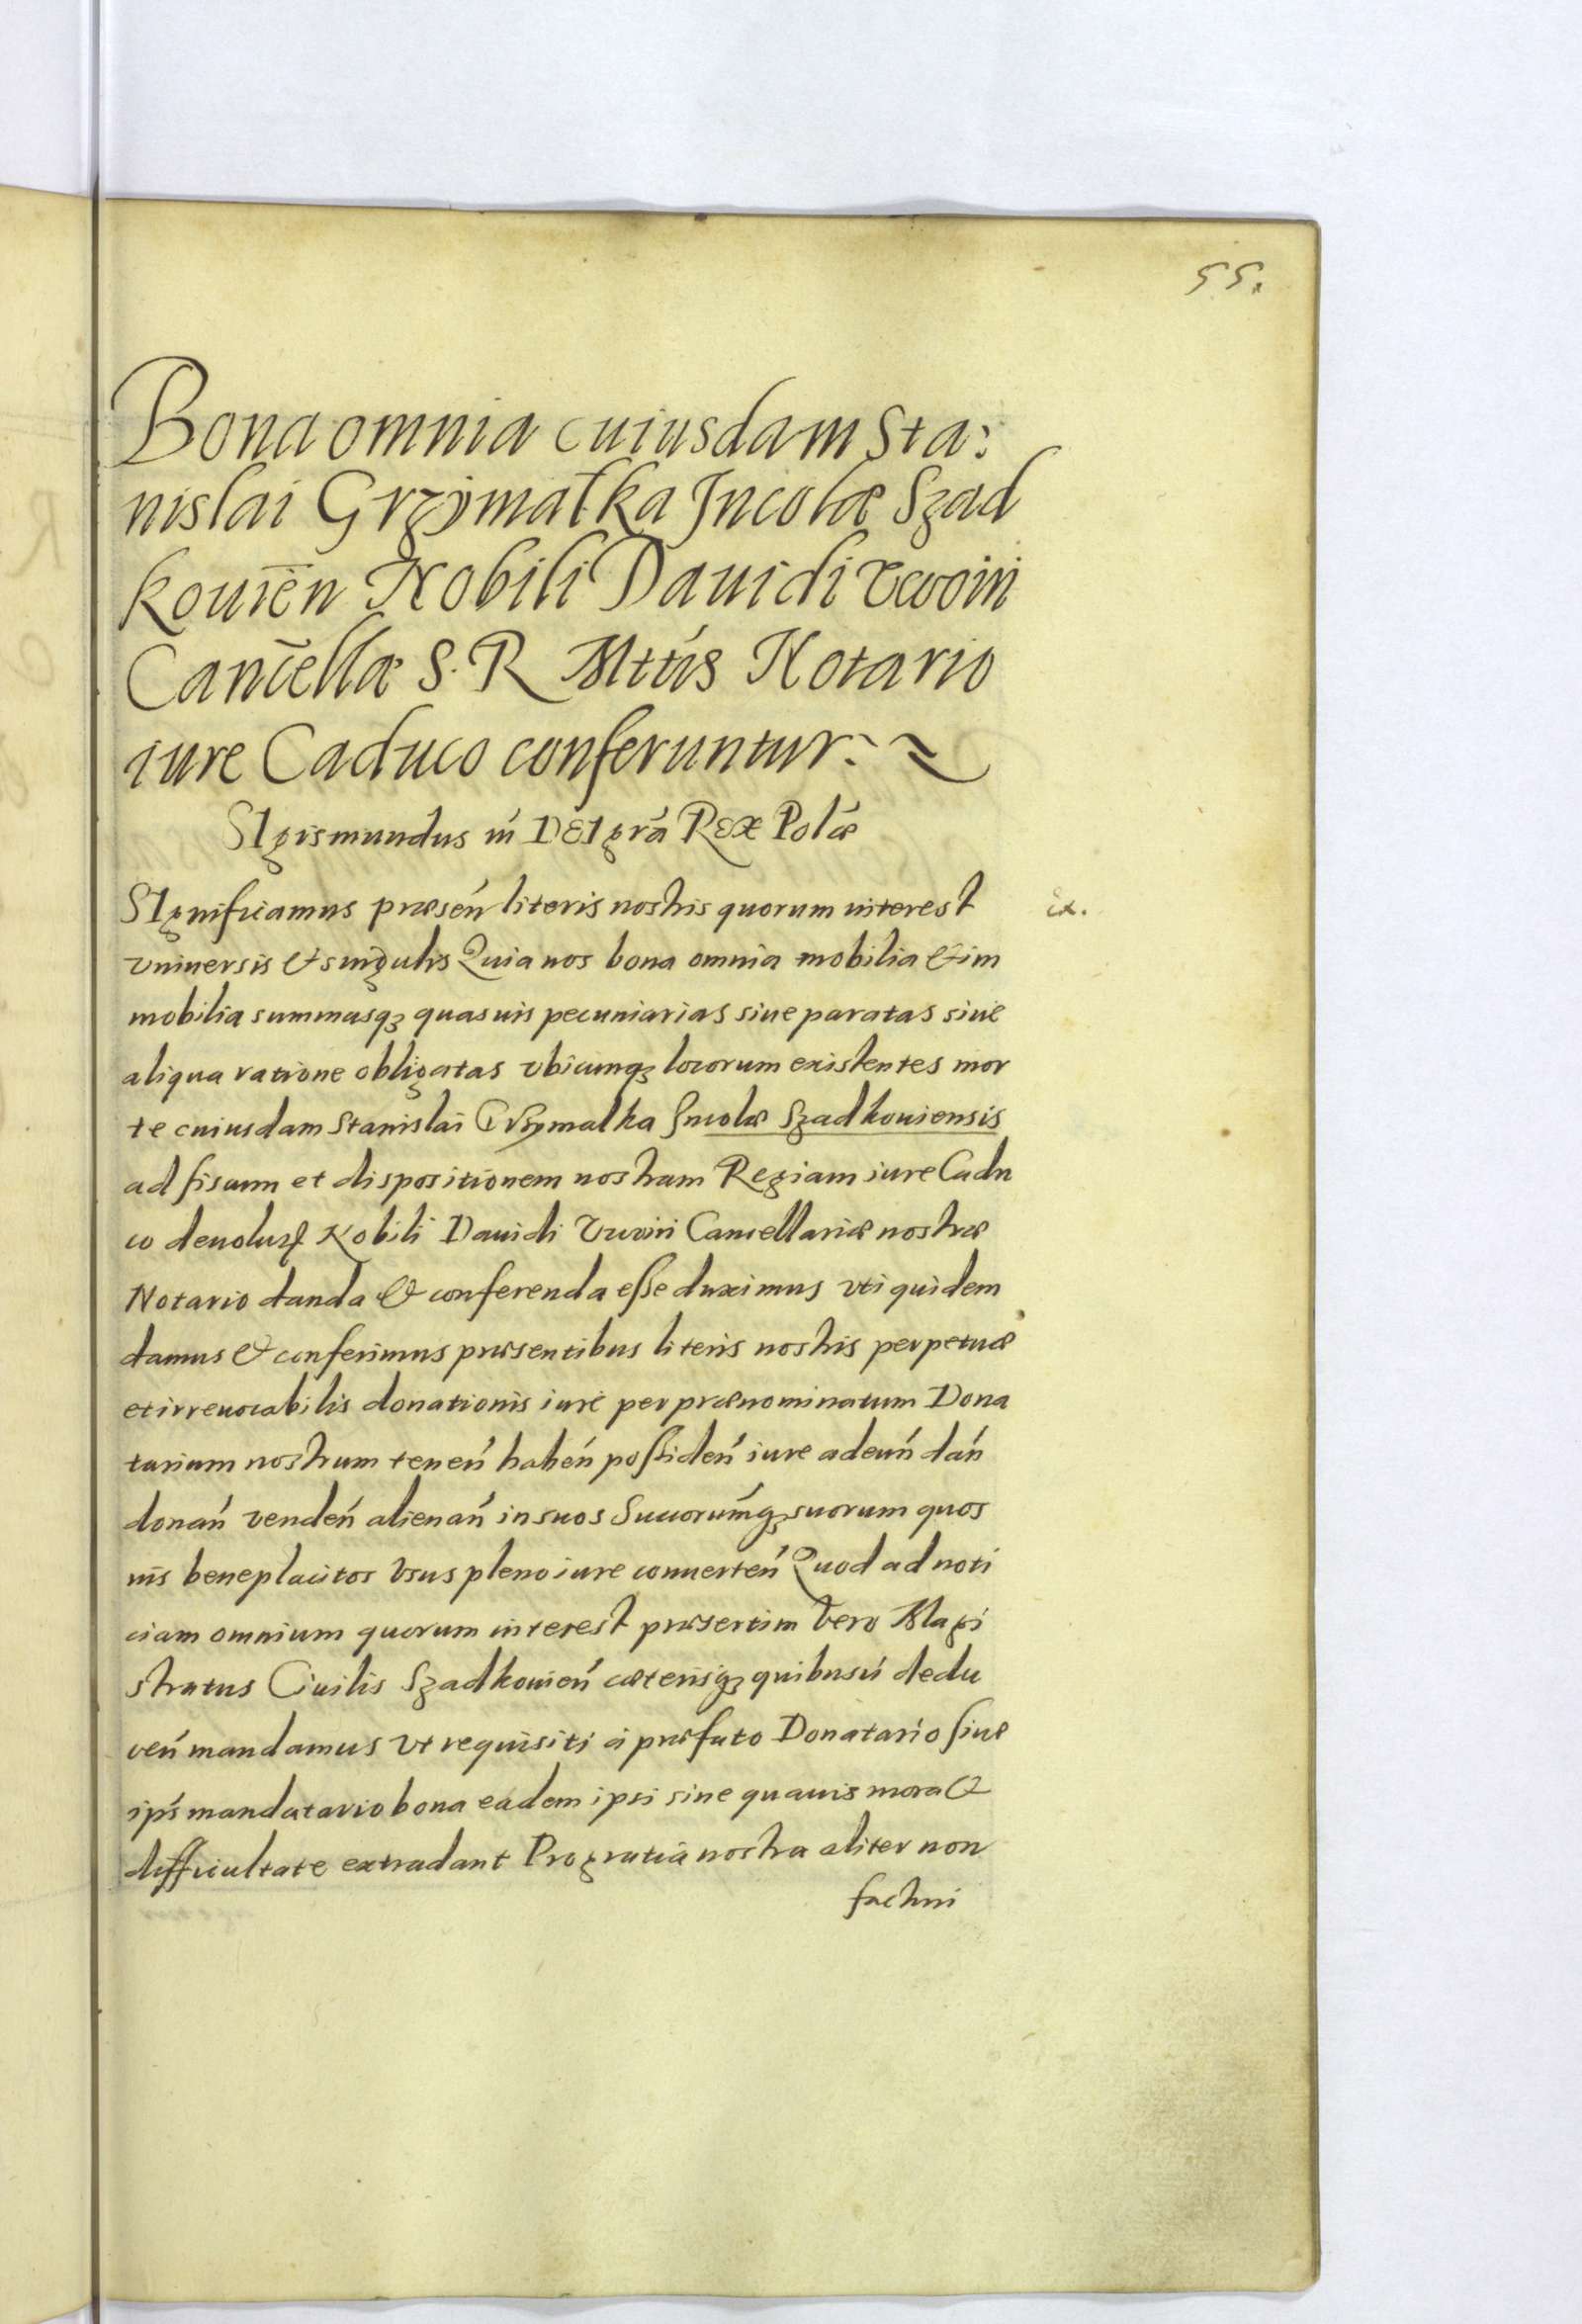 55.
Bona omnia cuiusdam Sta:
nislai Grzÿmałka Incolæ Szad
kouien̄ Nobili Dauidi
Can̄cellæ S. R Mttis Notario
iure Caduco conferuntur.
SIgismundus iii DEI gra REX Poĺæ
SIgnificamus præsen̄ literis nostris quorum interest
ex.
vniuersis & singulis Quia nos bona omnia mobilia & im
mobilia summasqꝫ quasuis pecuniarias siue paratas siue
aliqua ratione obligatas vbicunqꝫ locorum existentes mor
te cuiusdam Stanislai Grzymalka Incolæ Szadkouiensis
ad fiscum et dispositionem nostram Regiam iure Cadu
co deuoluṭ Nobili Dauidi Cancellariæ nostræ
Notario danda & conferenda esse duximus vti quidem
damus & conferimus præsentibus literis nostris perpetuæ
et irreuocabilis donationis iure per prænominatum Dona
tarium nostrum tenen̄ haben̄ possiden̄ iure adeun̄ dan̄
donan̄ venden̄ alienan̄ in suos Succorum̄qꝫ suorum quos
uis beneplacitos Vsus pleno iure conuerten̄ Quod ad noti
ciam omnium quorum interest præsertim Vero Magi
stratus Ciuilis Szadkouien̄ cæterisqꝫ quibusuis dedu
cen̄ mandamus Vt requisiti a præfato Donatario siue
ipś mandatario bona eadem ipsi sine quauis mora &
difficultate extradant Pro gratia nostra aliter non
facturi